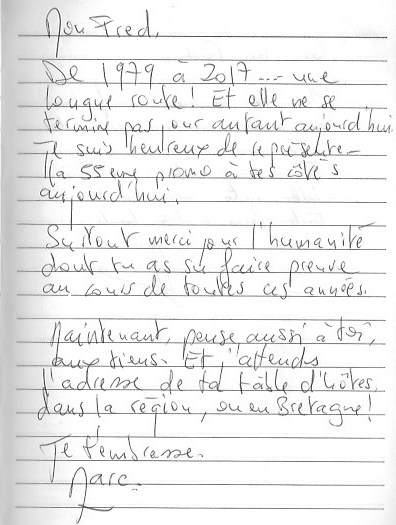 Mon Fred,
De 1979 à 2017.... une
longue route ! Et elle ne se
termine pas pour autant aujourd'hui.
Je suis heureux de représenter
la 55eme promo à tes côtés
aujourd'hui.
Surtout merci pour l'humanité
dont tu as su faire preuve
au cours de toutes ces années.
Maintenant, pense aussi à toi,
aux tiens. Et j'attends
l'adresse de ta table d'hôtes,
dans la région, ou en Bretagne !
Je t'embrasse.
Marc.